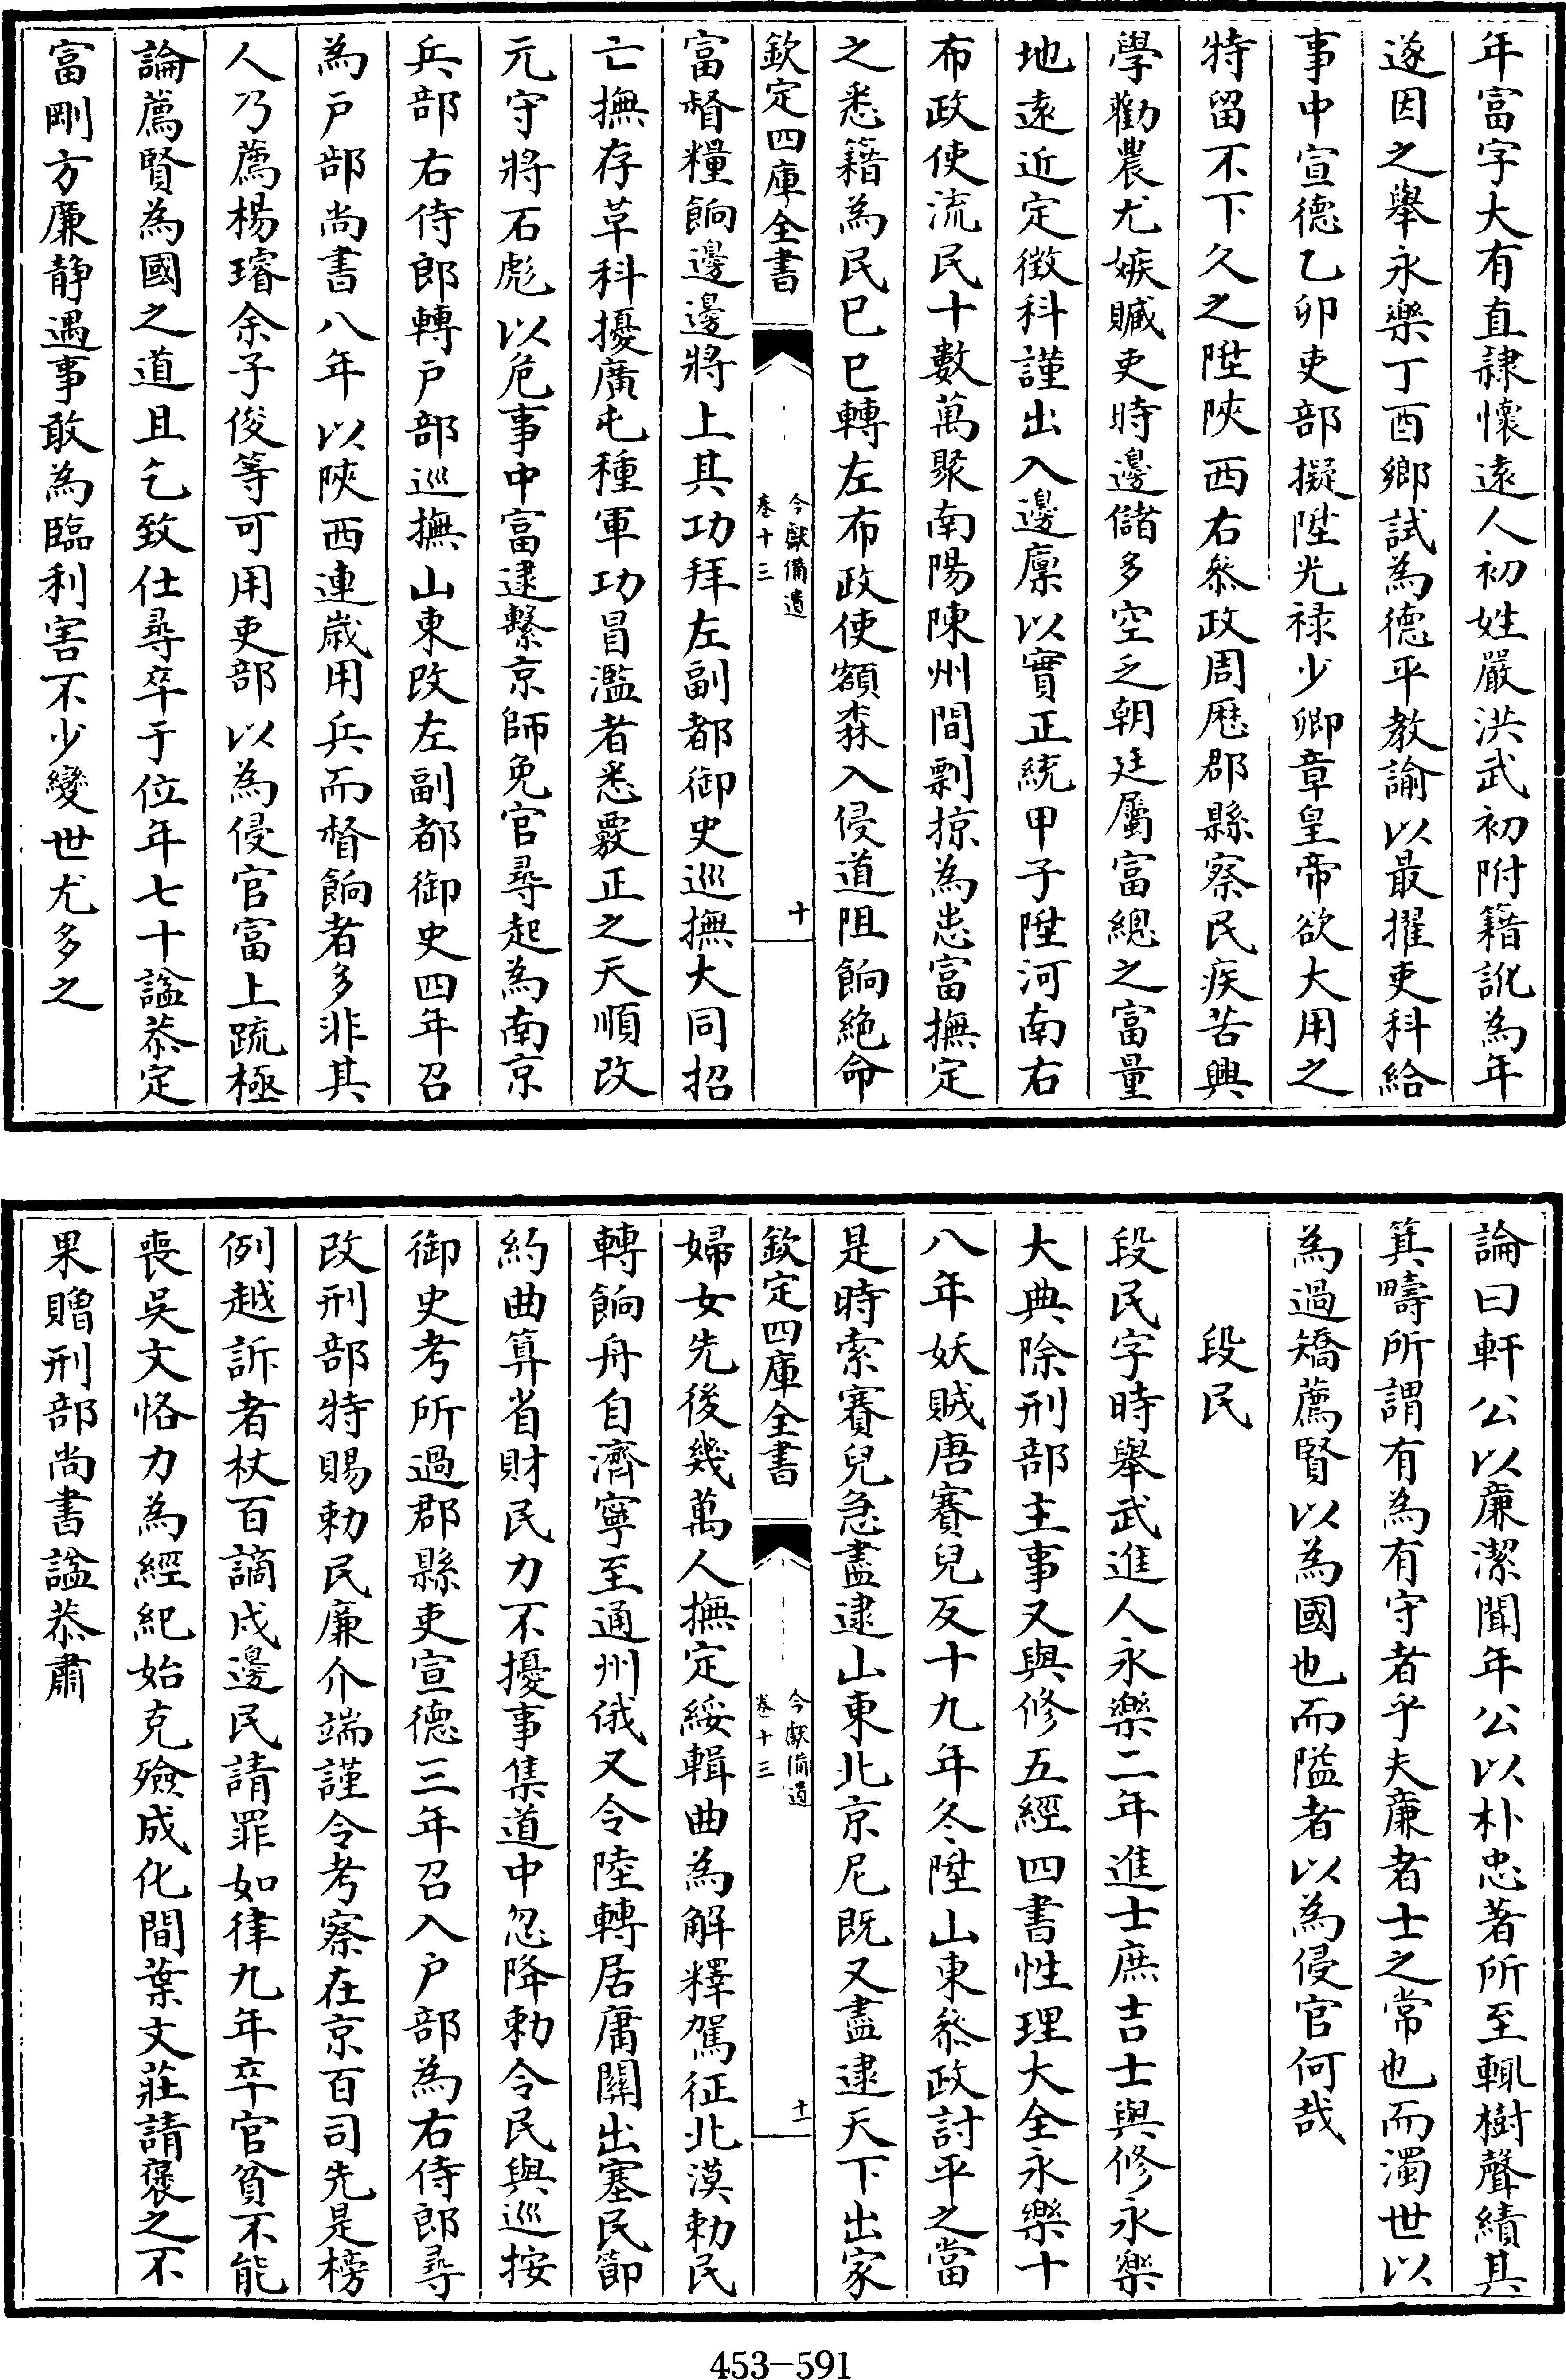 年富字大有直隷懷遠人初姓嚴洪武初附籍訛為年
遂因之舉永樂丁酉鄉試為德平教諭以最擢吏科給
事中宣德乙卯吏部擬陞光禄少卿章皇帝欲大用之
特留不下久之陞陜西右叅政周厯郡縣察民疾苦興
學勸農尤嫉贓吏時邊儲多空乏朝廷屬富總之富量
地逺近定徴科謹出入邊廪以實正統甲子陞河南右
布政使流民十數萬聚南陽陳州間剽掠為患富撫定
之悉籍為民已巳轉左布政使額森入侵道阻餉絶命
欽定四庫全書
今獻備遺
卷十三
十
富督糧餉邊邊將上其功拜左副都御史巡撫大同招
亡撫存革科擾廣屯種軍功冒濫者悉覈正之天順改
元守將石彪以危事中富逮繫京師免官尋起為南京
兵部右侍郎轉户部巡撫山東改左副都御史四年召
為户部尚書八年以陜西連歳用兵而督餉者多非其
人乃薦楊璿余子俊等可用吏部以為侵官富上疏極
論薦賢為國之道且乞致仕尋卒于位年七十諡恭定
富剛方廉静遇事敢為臨利害不少變世尤多之
論曰軒公以廉潔聞年公以朴忠著所至輒樹聲績其
箕疇所謂有為有守者乎夫廉者士之常也而濁世以
為過矯薦賢以為國也而隘者以為侵官何哉
段民
段民字時舉武進人永樂二年進士庶吉士與修永樂
大典除刑部主事又與修五經四書性理大全永樂十
八年妖賊唐賽兒反十九年冬陞山東叅政討平之當
是時索賽兒急盡逮山東北京尼既又盡逮天下出家
欽定四庫全書
今獻備遺
卷十三
十一
婦女先後幾萬人撫定綏輯曲為解釋駕征北漠勅民
轉餉舟自濟寧至通州俄又令陸轉居庸關出塞民節
約曲算省財民力不擾事集道中忽降勅令民與巡按
御史考所過郡縣吏宣德三年召入户部為右侍郎尋
改刑部特賜勅民廉介端謹令考察在京百司先是榜
例越訴者杖百謫戍邊民請罪如律九年卒官貧不能
喪吳文恪力為經紀始克殮成化間葉文莊請褒之不
果贈刑部尚書諡恭肅
453-591